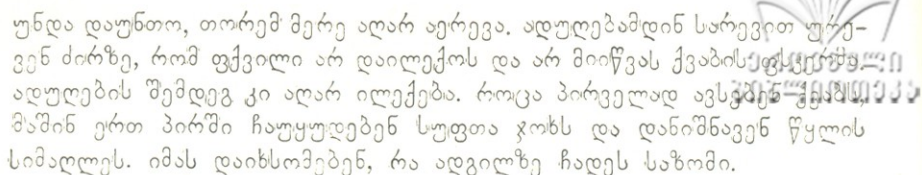 უნდა დაუნთო, თორემ მერე აღარ აერევა. ადუღებამდინ სარევით ურე-
ვენ ძირზე, რომ ფქვილი არ დაილექოს და არ მიიწვას ქვაბის ფსკერზე.
ადუღების შემდეგ კი აღარ ილექება. როცა პირველად ავსებენ ქვაბს,
მაშინ ერთ პირში ჩაუყუდებენ სუფთა ჯოხს და დანიშნავენ წყლის
სიმაღლეს. იმას დაიხსომებენ, რა ადგილზე ჩადეს საზომი.
ეროვნული
ბიბლიოთეკა